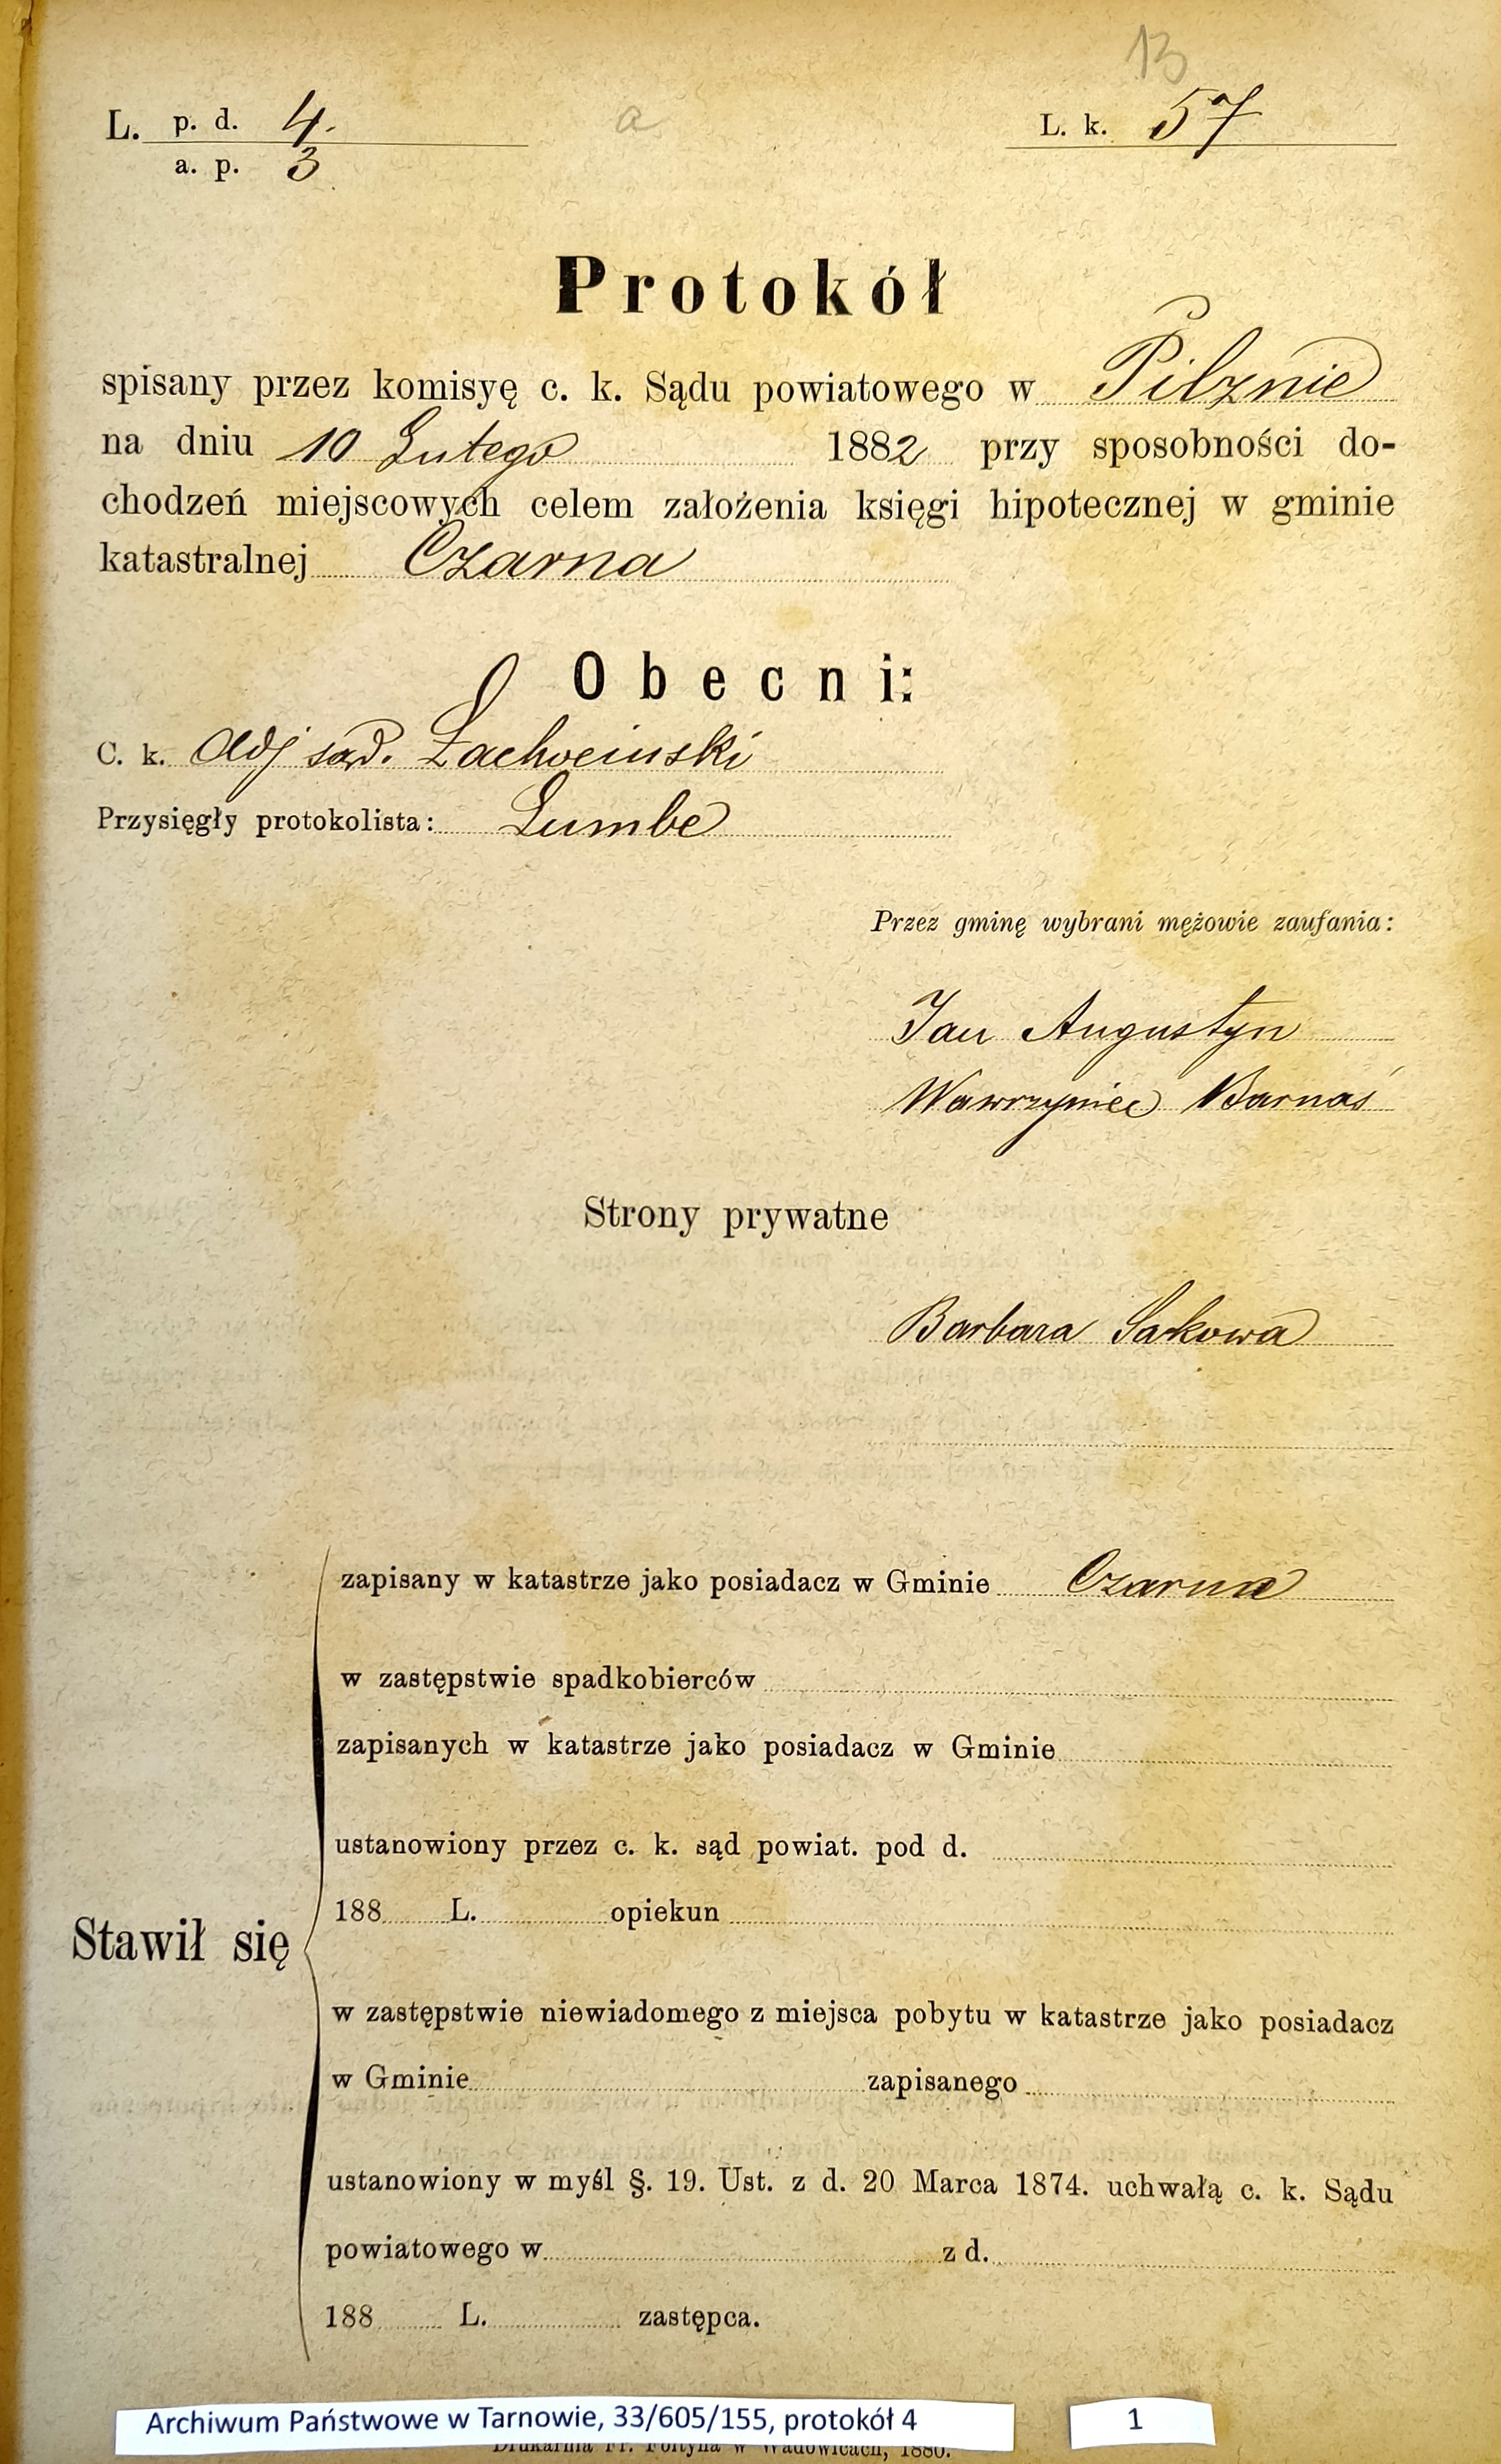 13
L. p. d. 4. a L. k. 57
a. p. 3
Protokół
spisany przez komisyę c. k. Sądu powiatowego w Pilznie
na dniu 10 Lutego 1882 przy sposobności do-
chodzeń miejscowych celem założenia księgi hipotecznej w gminie
katastralnej Czarna
Obecni:
C. k. Adj sąd.
Przysięgły protokolista: Lumbe
Przez gminę wybrani mężowie zaufania:
Jan Augustyn
Wawrzyniec Barnaś
Strony prywatne
Barbara Sakowa
zapisany w katastrze jako posiadacz w Gminie Czarna
w zastępstwie spadkobierców
zapisanych w katastrze jako posiadacz w Gminie
ustanowiony przez c. k. sąd powiat. pod d.
188 L. opiekun
Stawił się
w zastępstwie niewiadomego z miejsca pobytu w katastrze jako posiadacz
w Gminie zapisanego
ustanowiony w myśl §. 19. Ust. z d. 20 Marca 1874. uchwałą c. k. Sądu
powiatowego w z d.
188 L. zastępca.
Archiwum Państwowe w Tarnowie, 33/605/155, protokół 4 1
Drukarnia Fr. Foltyna w Wadowicach, 1880.